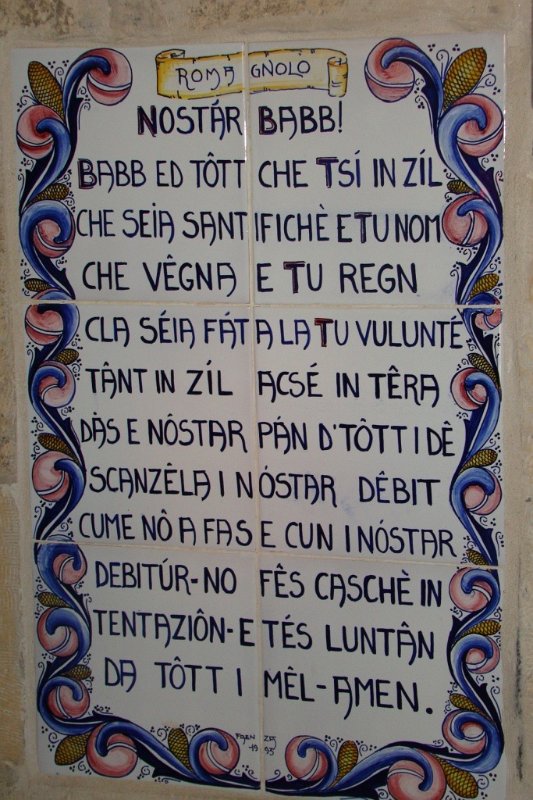 ROMAGNOLO
NOSTÁR BABB!
BABB ED TÔTT CHE TSÍ IN ZÍL
CHE SEIA SANTIFICHÈ E TU NOM
CHE VÊGNA E TU REGN
CLA SÉIA FÁTA LA TU VULUNTÉ
TÂNT IN ZÍL ACSÉ IN TÊRA
DÀS E NÓSTAR PÁN D'TÔTT I DÊ
SCANZÊLA I NÓSTAR DÊBIT
CUME NÔ A FASE CUN I NÓSTAR
DEBITÚR-NO FÊS CASCHÈ IN
TENTAZIÔN-E TÉS LUNTÂN
DA TÔTT I MÊL-AMEN.
FAENZA
1995